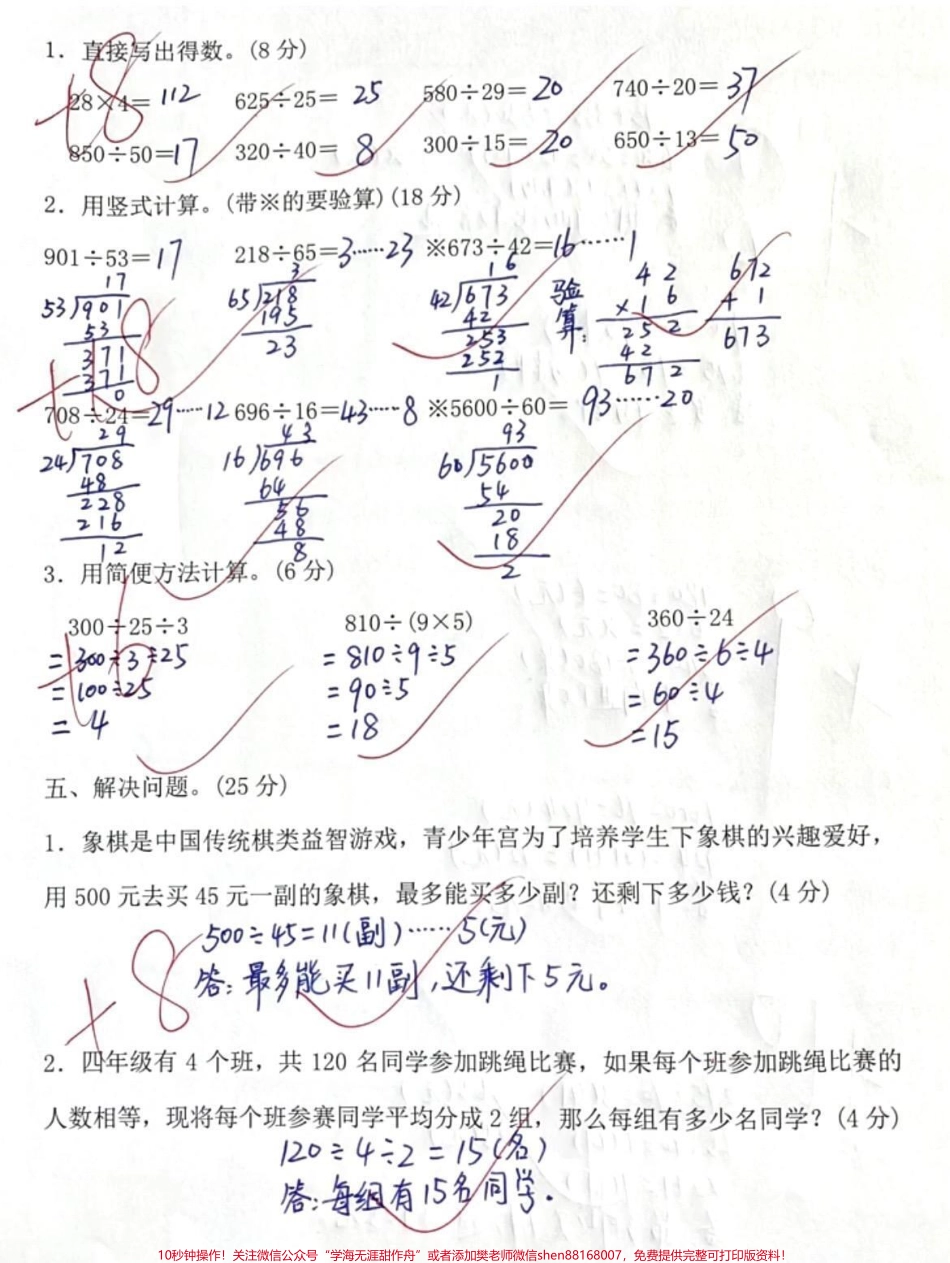 1. 直接写出得数。(8 分)
+8
28×4= 112 625÷25= 25 580÷29= 20 740÷20= 37
850÷50=17 320÷40= 8 300÷15= 20 650÷13= 50
2. 用竖式计算。(带※的要验算)(18 分)
901÷53=17 218÷65=3……23 ※673÷42=16……1
17 3 16 42 672
53)901 65)218 42)673 验算: ×16 +1
53 195 42 252 673
371 23 253 42
371 252 672
0 1
+18
708÷24=29……12 696÷16=43……8 ※5600÷60= 93……20
29 43 93
24)708 16)696 60)5600
48 64 54
228 56 20
216 48 18
12 8 2
3. 用简便方法计算。(6 分)
+6
300÷25÷3 810÷(9×5) 360÷24
=300÷3÷25 =810÷9÷5 =360÷6÷4
=100÷25 =90÷5 =60÷4
=4 =18 =15
五、解决问题。(25 分)
1. 象棋是中国传统棋类益智游戏，青少年宫为了培养学生下象棋的兴趣爱好，
用 500 元去买 45 元一副的象棋，最多能买多少副？还剩下多少钱？(4 分)
500÷45=11(副)……5(元)
答:最多能买11副,还剩下5元。
+8
2. 四年级有 4 个班，共 120 名同学参加跳绳比赛，如果每个班参加跳绳比赛的
人数相等，现将每个班参赛同学平均分成 2 组，那么每组有多少名同学？(4 分)
120÷4÷2=15(名)
答:每组有15名同学.
10秒钟操作！关注微信公众号“学海无涯甜作舟”或者添加樊老师微信shen88168007，免费提供完整可打印版资料！